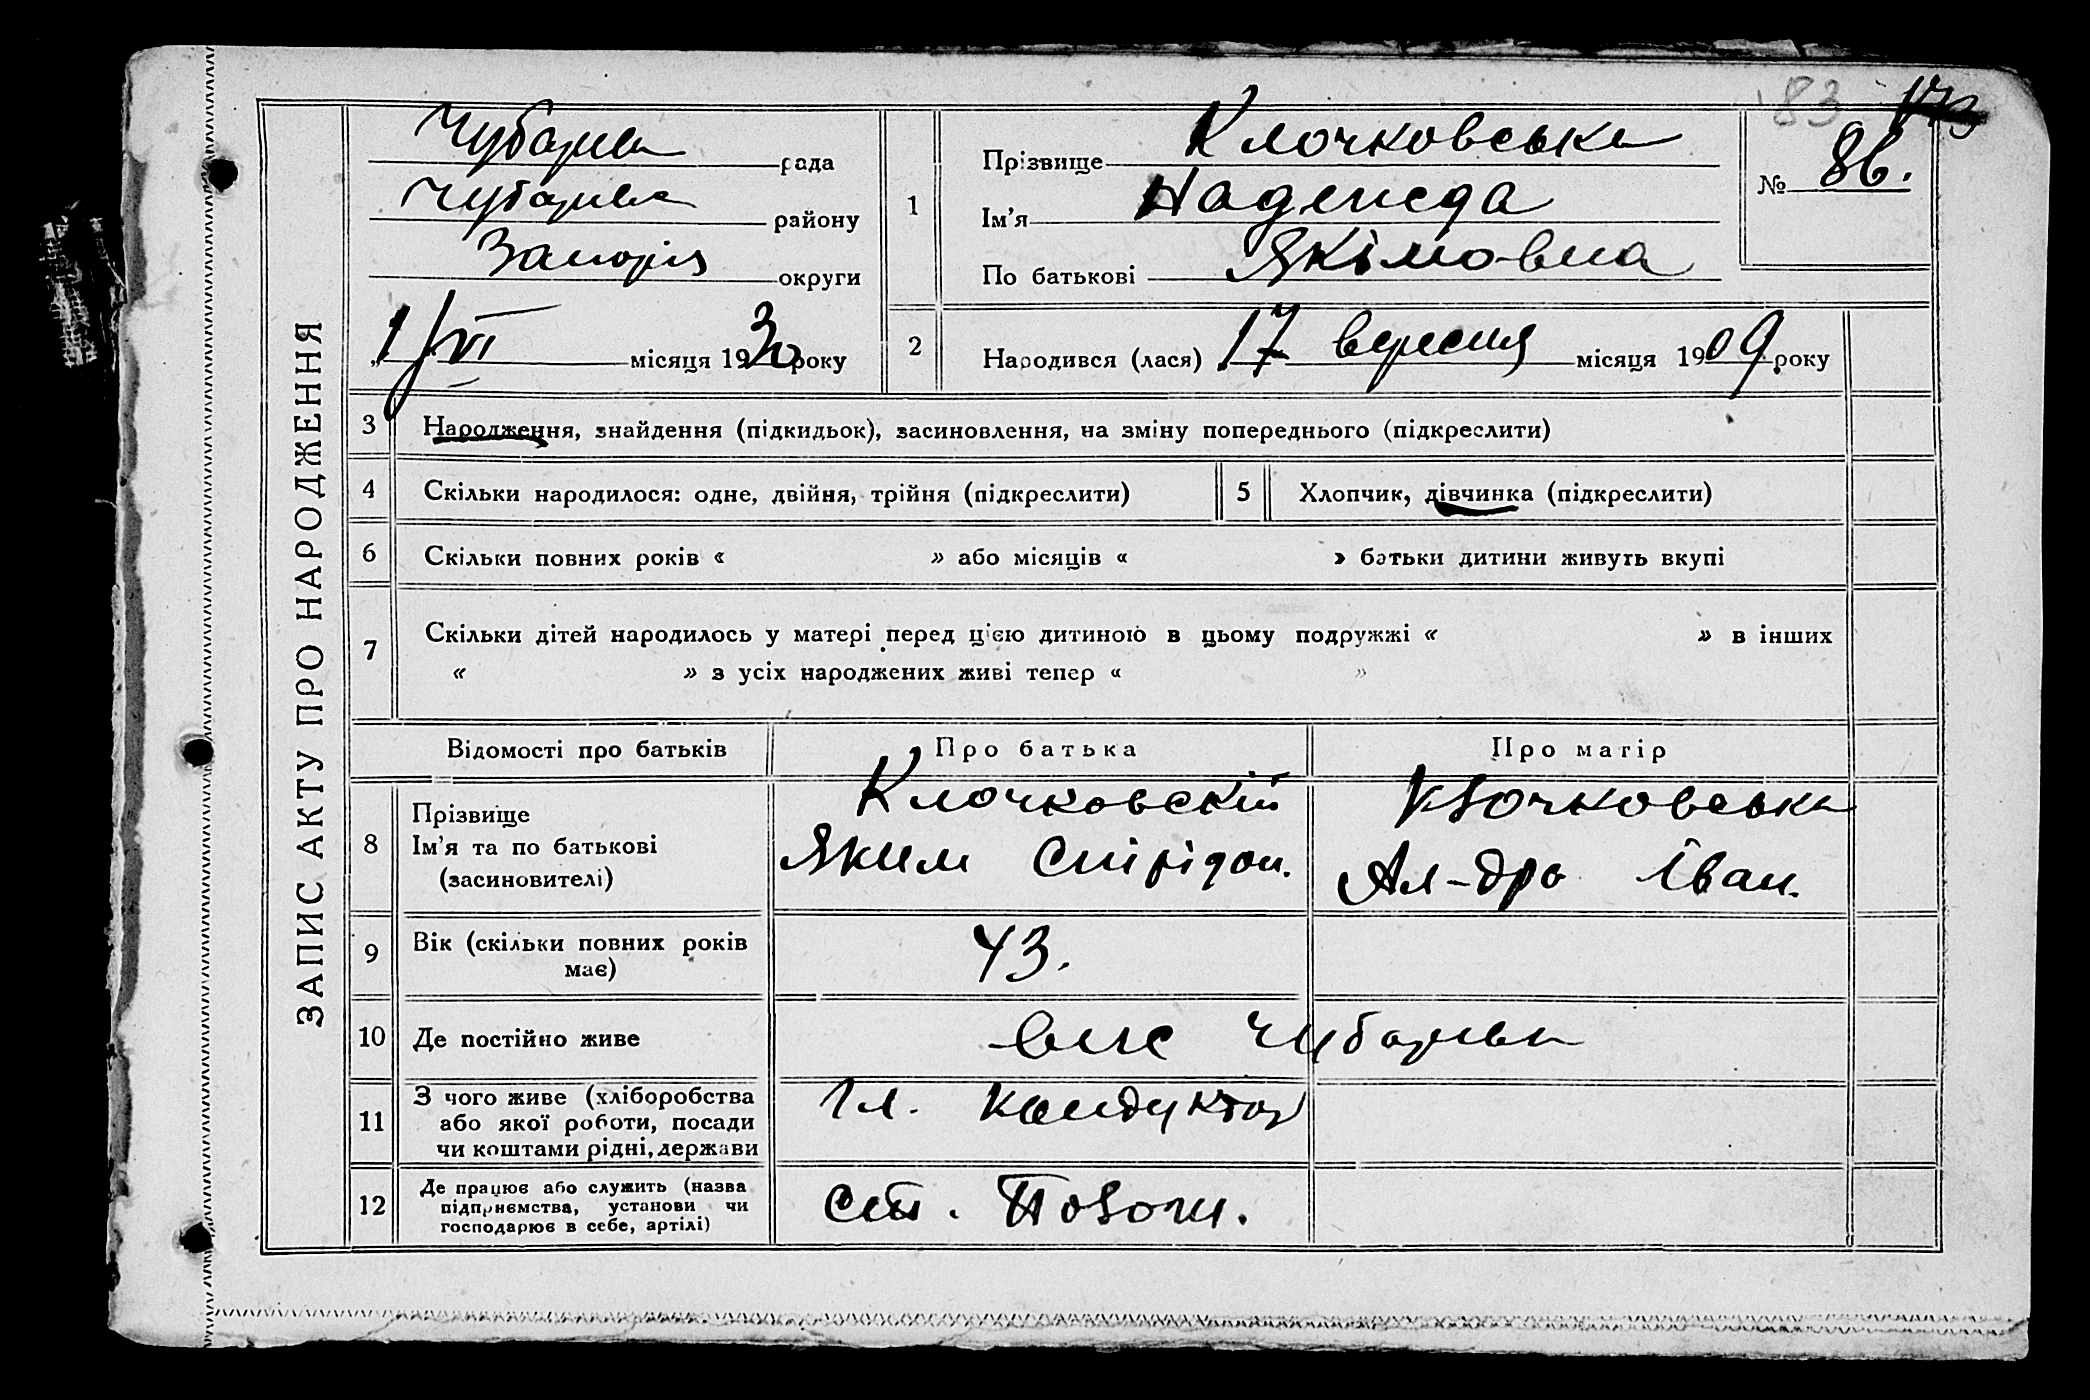 83 173
ЗАПИС АКТУ ПРО НАРОДЖЕННЯ
Чубарів рада
Чубарівс району
Запоріз округи
1/VI місяця 1930 року
1
Прізвище Клочковська
Ім'я Надежда
По батькові Якімовна
№ 86.
2 Народився (лася) 17 вересня місяця 1909 року
3 Народження, знайдення (підкидьок), засиновлення, на зміну попереднього (підкреслити)
4 Скільки народилося: одне, двійня, трійня (підкреслити) 5 Хлопчик, дівчинка (підкреслити)
6 Скільки повних років « » або місяців « » батьки дитини живуть вкупі
7 Скільки дітей народилось у матері перед цією дитиною в цьому подружжі « » в інших
« » з усіх народжених живі тепер « »
Відомості про батьків Про батька Про матір
8 Прізвище
Ім'я та по батькові
(засиновителі)
Клочковскій
Яким Спірідон.
Клочковська
Ал-дра Іван.
9 Вік (скільки повних років
має)
43.
10 Де постійно живе Чубарівк
11 З чого живе (хліборобства
або якої роботи, посади
чи коштами рідні, держави
Гл. Кондуктор
12 Де працює або служить (назва
підприємства, установи чи
господарює в себе, артілі)
ст. Пологи.